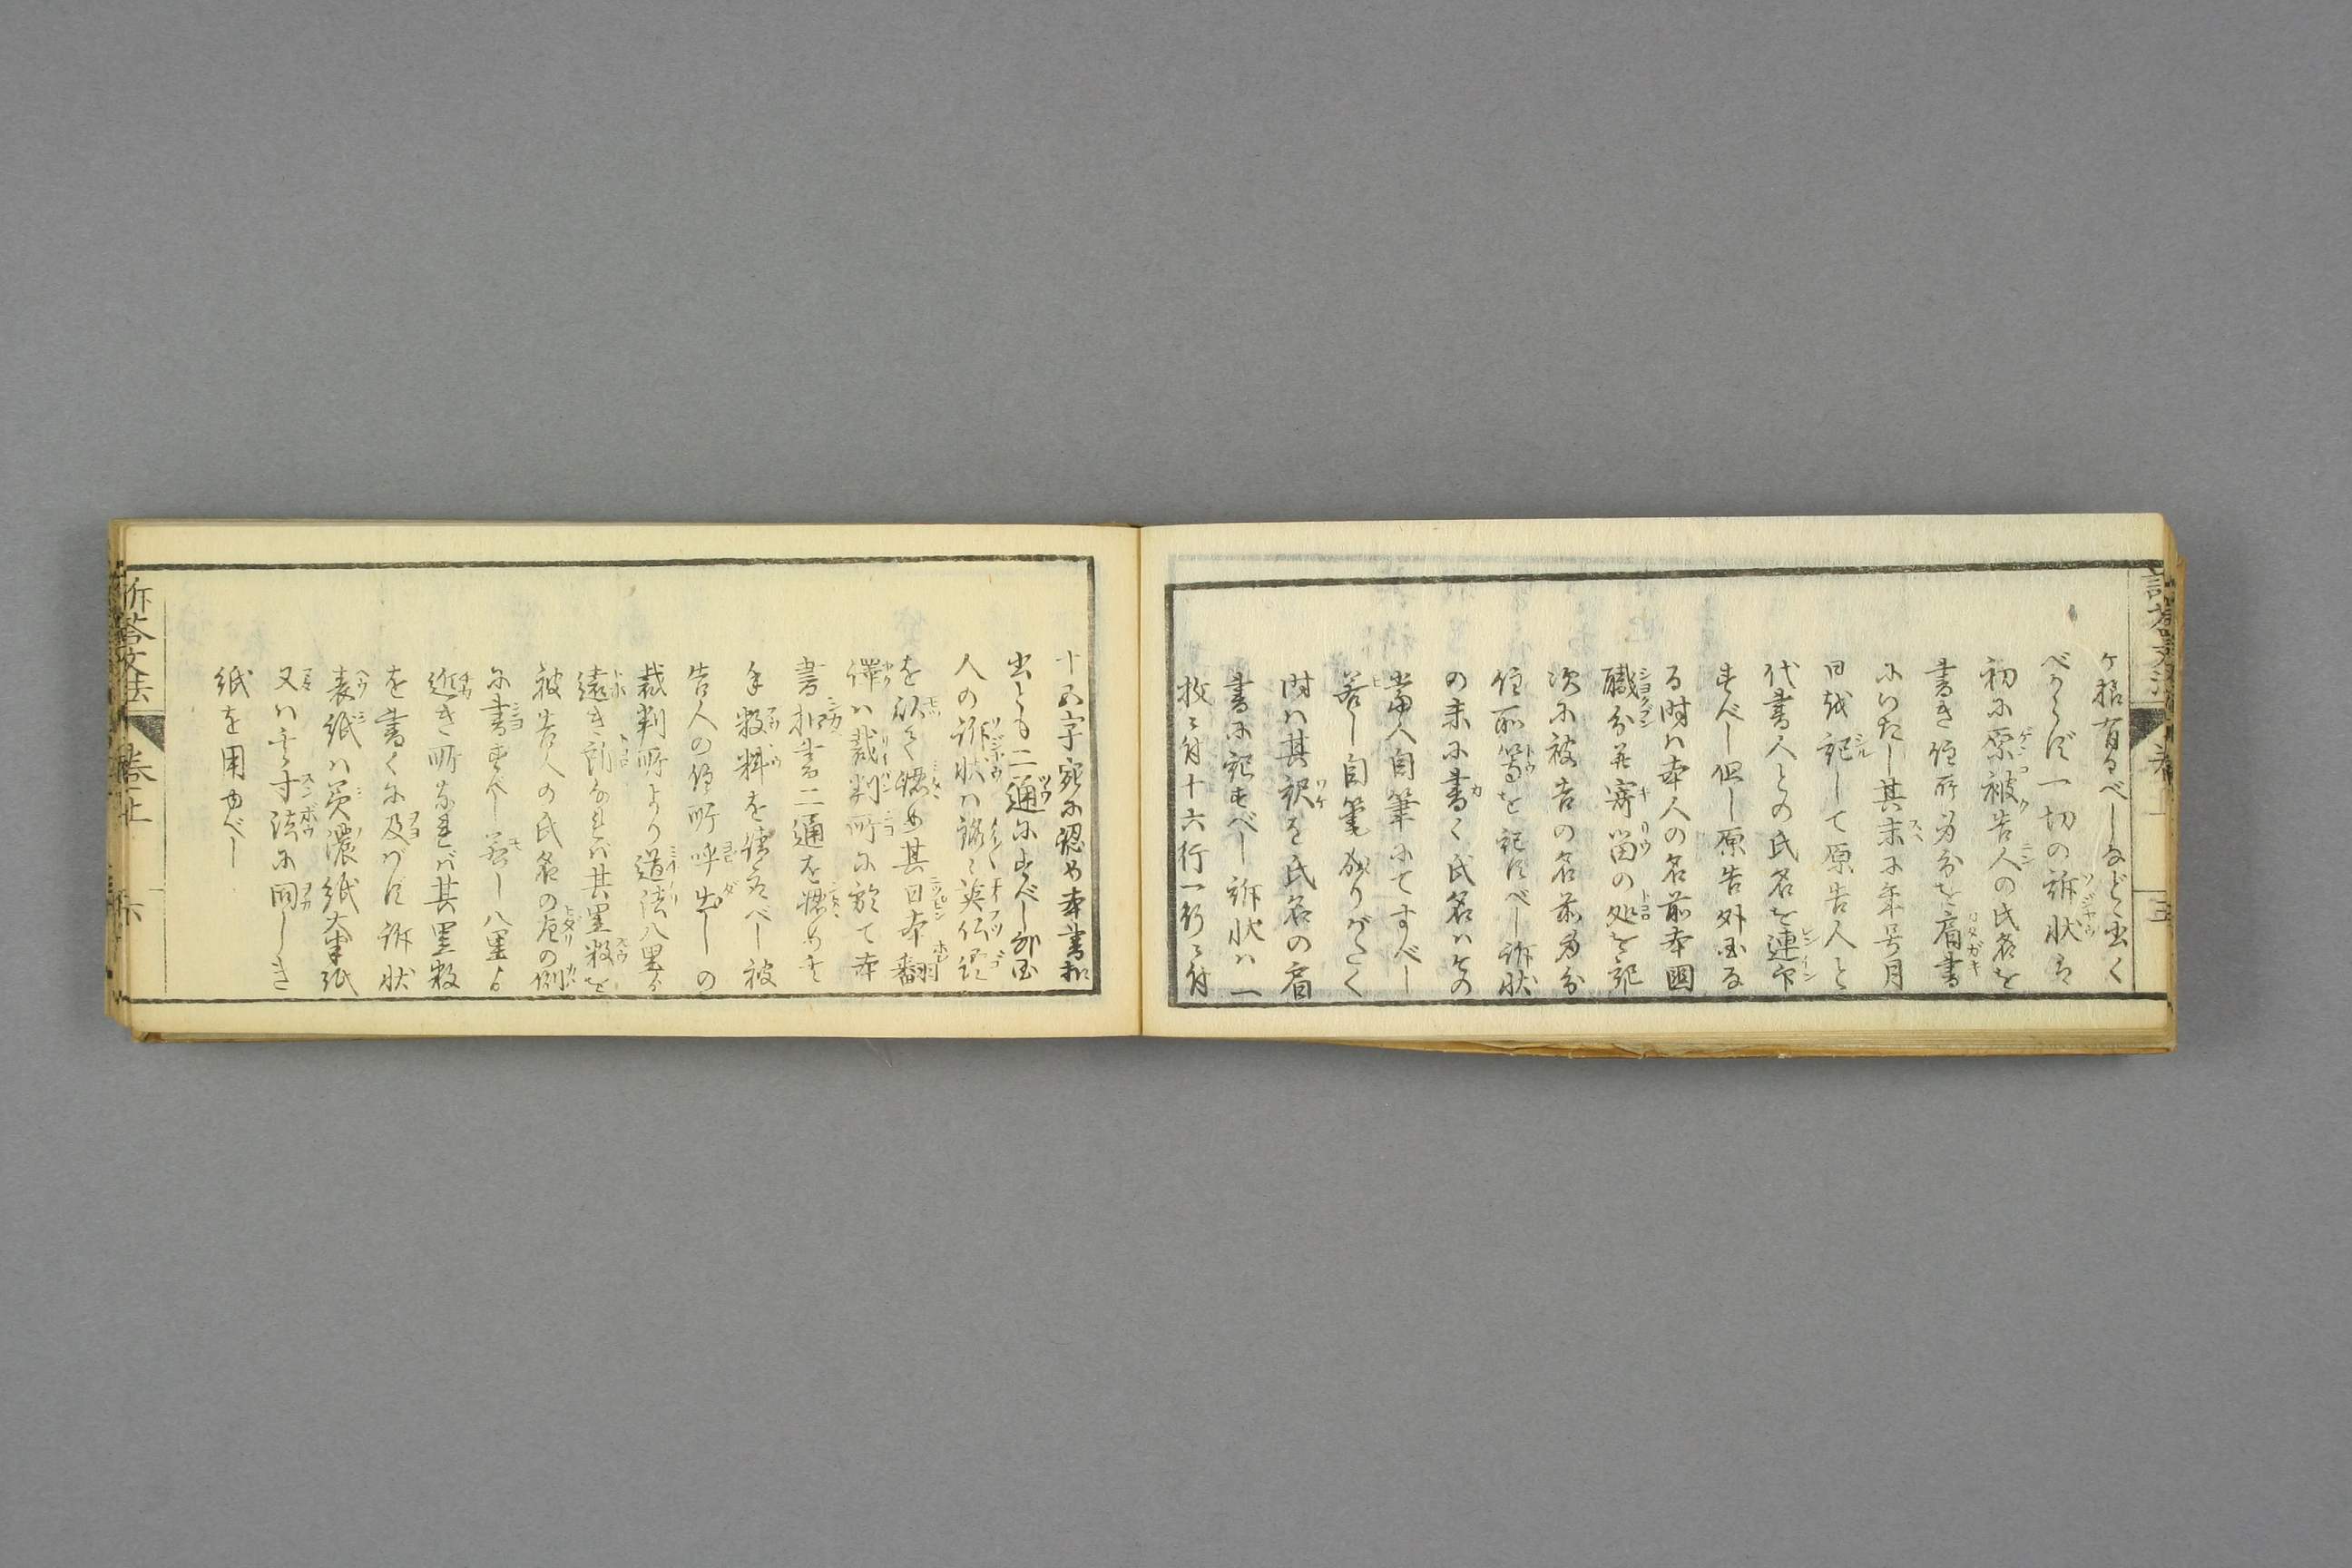 訴答文法 巻上 五
ケ條有るべしなど書く
べからず一切の訴状は
初に原被告人の氏名を
書き住所身分を肩書
にいたし其末に年号月
日を記して原告人と
代書人との氏名を連印
すべし但し原告外国な
る時ハ本人の名前本国
職分并寄留の処を記
次に被告の名前身分
住所等を記すべし訴状
の末に書く氏名ハその
当人自筆にてすべし
若し自筆成りがたく
時ハ其訳を氏名の肩
書に記すべし訴状ハ一
枚に付十六行一行に付
十五字宛に認め本書扣
書とも二通にすべし外国
人の訴状ハ英仏語
を以て認め其日本翻
譯ハ裁判所に於て本
書扣書二通を認めさせ
手数料を すべし被
告人の住所呼出しの
裁判所より道法八里より
遠き所なれバ其里数を
被告人の氏名の左の側
に書すべし若し八里より
近き所なれバ其里数
を書くに及バず訴状
表紙ハ美濃紙大半紙
又ハ其寸法に同じき
紙を用ゆべし
訴答文法 巻上 六